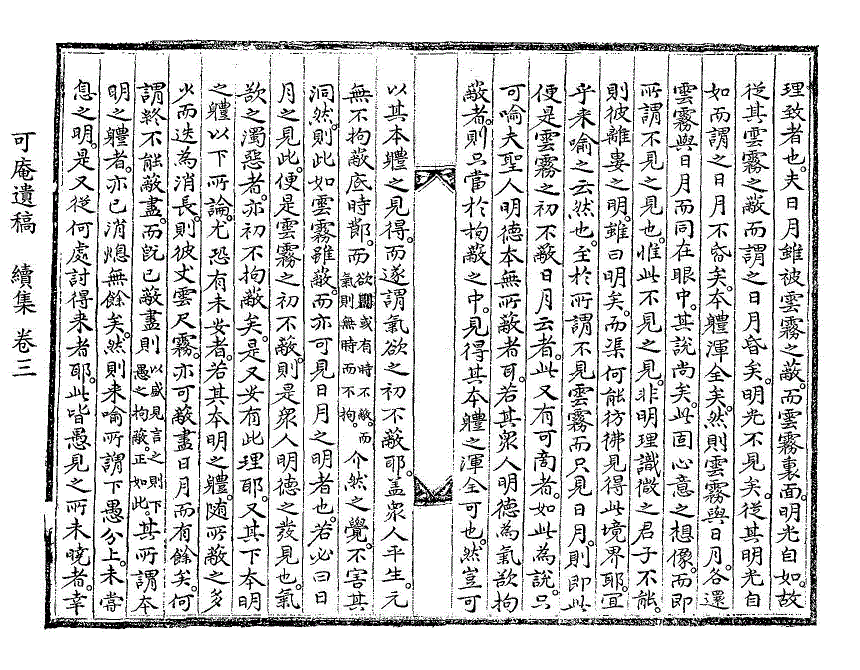 理致者也。夫日月雖被雲霧之蔽。而雲霧裏面。明光自如。故
從其雲霧之蔽而謂之日月昏矣。明光不見矣。從其明光自
如而謂之日月不昏矣。本軆渾全矣。然則雲霧與日月。各還
雲霧與日月而同在眼中。其說尚矣。此固心意之想像。而卽
所謂不見之見也。惟此不見之見。非明理識微之君子不能。
則彼離婁之明。雖曰明矣。而渠何能彷彿見得此境界耶。宜
乎來喩之云然也。至於所謂不見雲霧而只見日月。則卽此
便是雲霧之初不蔽日月云者。此又有可商者。如此爲說。只
可喩夫聖人明德本無所蔽者耳。若其衆人明德爲氣欲拘
蔽者。則只當於拘蔽之中。見得其本軆之渾全可也。然豈可
以其本軆之見得。而遂謂氣欲之初不蔽耶。盖衆人平生。元
無不拘蔽底時節。而欲則或有時不蔽。而氣則無時而不拘。介然之覺。不害其
洞然。則此如雲霧雖蔽。而亦可見日月之明者也。若必曰日
月之見此。便是雲霧之初不蔽。則是衆人明德之發見也。氣
欲之濁惡者。亦初不拘蔽矣。是又安有此理耶。又其下本明
之軆以下所論。尤恐有未安者。若其本明之軆。隨所蔽之多
少而迭爲消長。則彼丈雲尺霧。亦可蔽盡日月而有餘矣。何
謂終不能蔽盡。而旣已蔽盡則以盛見言之則下愚之拘蔽。正如此。其所謂本
明之軆者。亦已消熄無餘矣。然則來喩所謂下愚分上。未嘗
息之明。是又從何處討得來者耶。此皆愚見之所未曉者。幸
可庵遺稿 續集 卷三